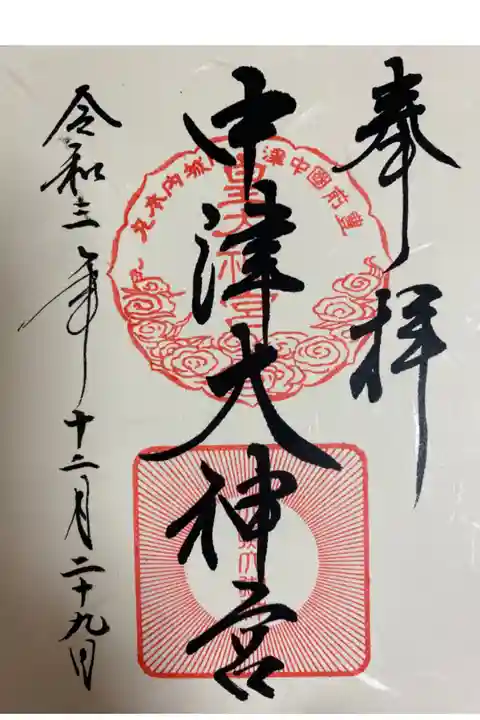 奉拝
中津大神宮
令和三年十二月二十九日
豊前國中津
皇大神宮